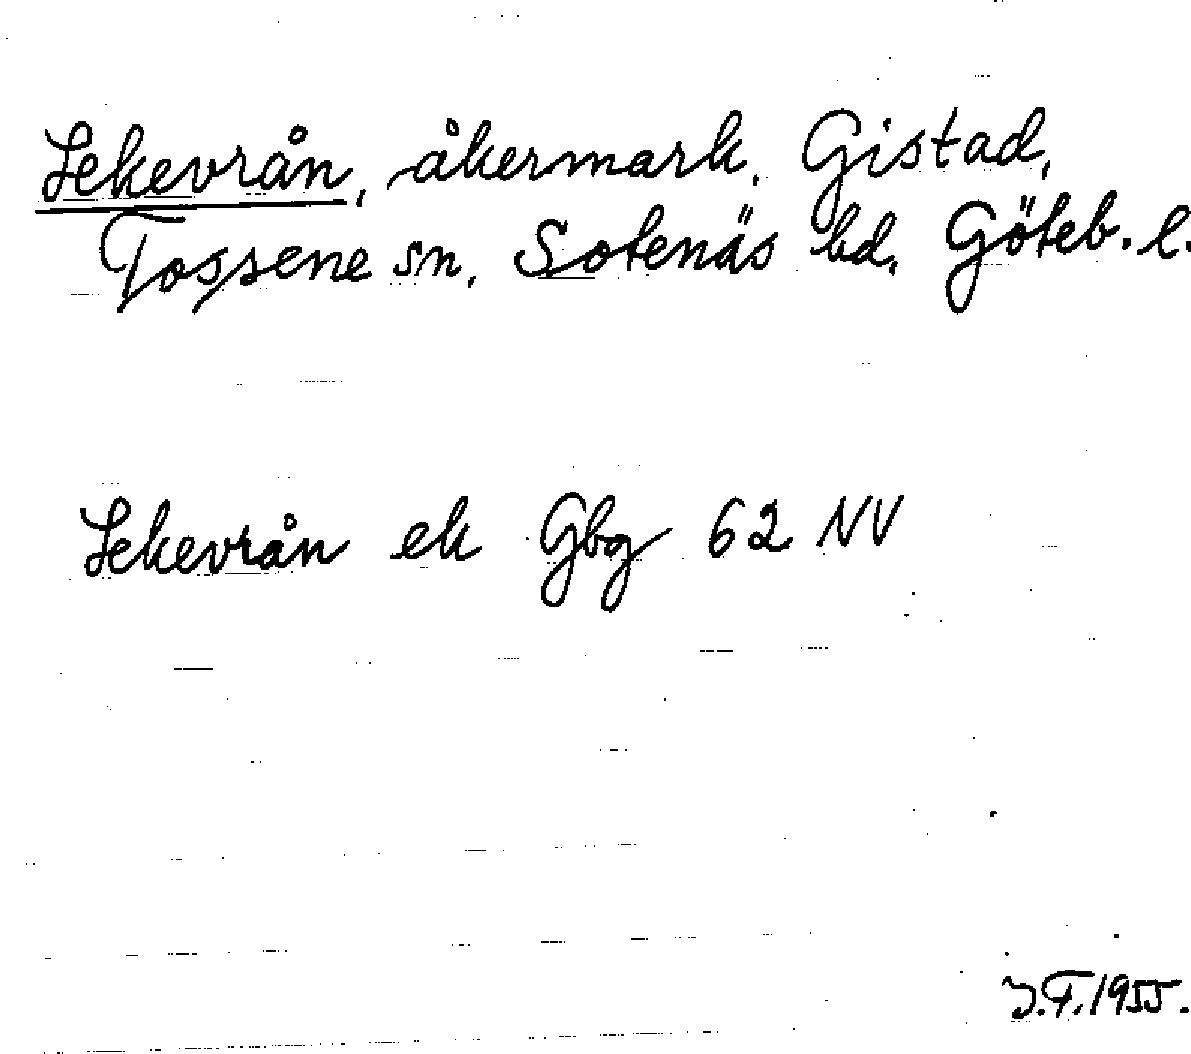 Lekevrån, åkermark, Gistad,
Tossene sn, Sotenäs hd, Göteb. l.
Lekevrån ek Gbg 62 NV
J.F. 1955.